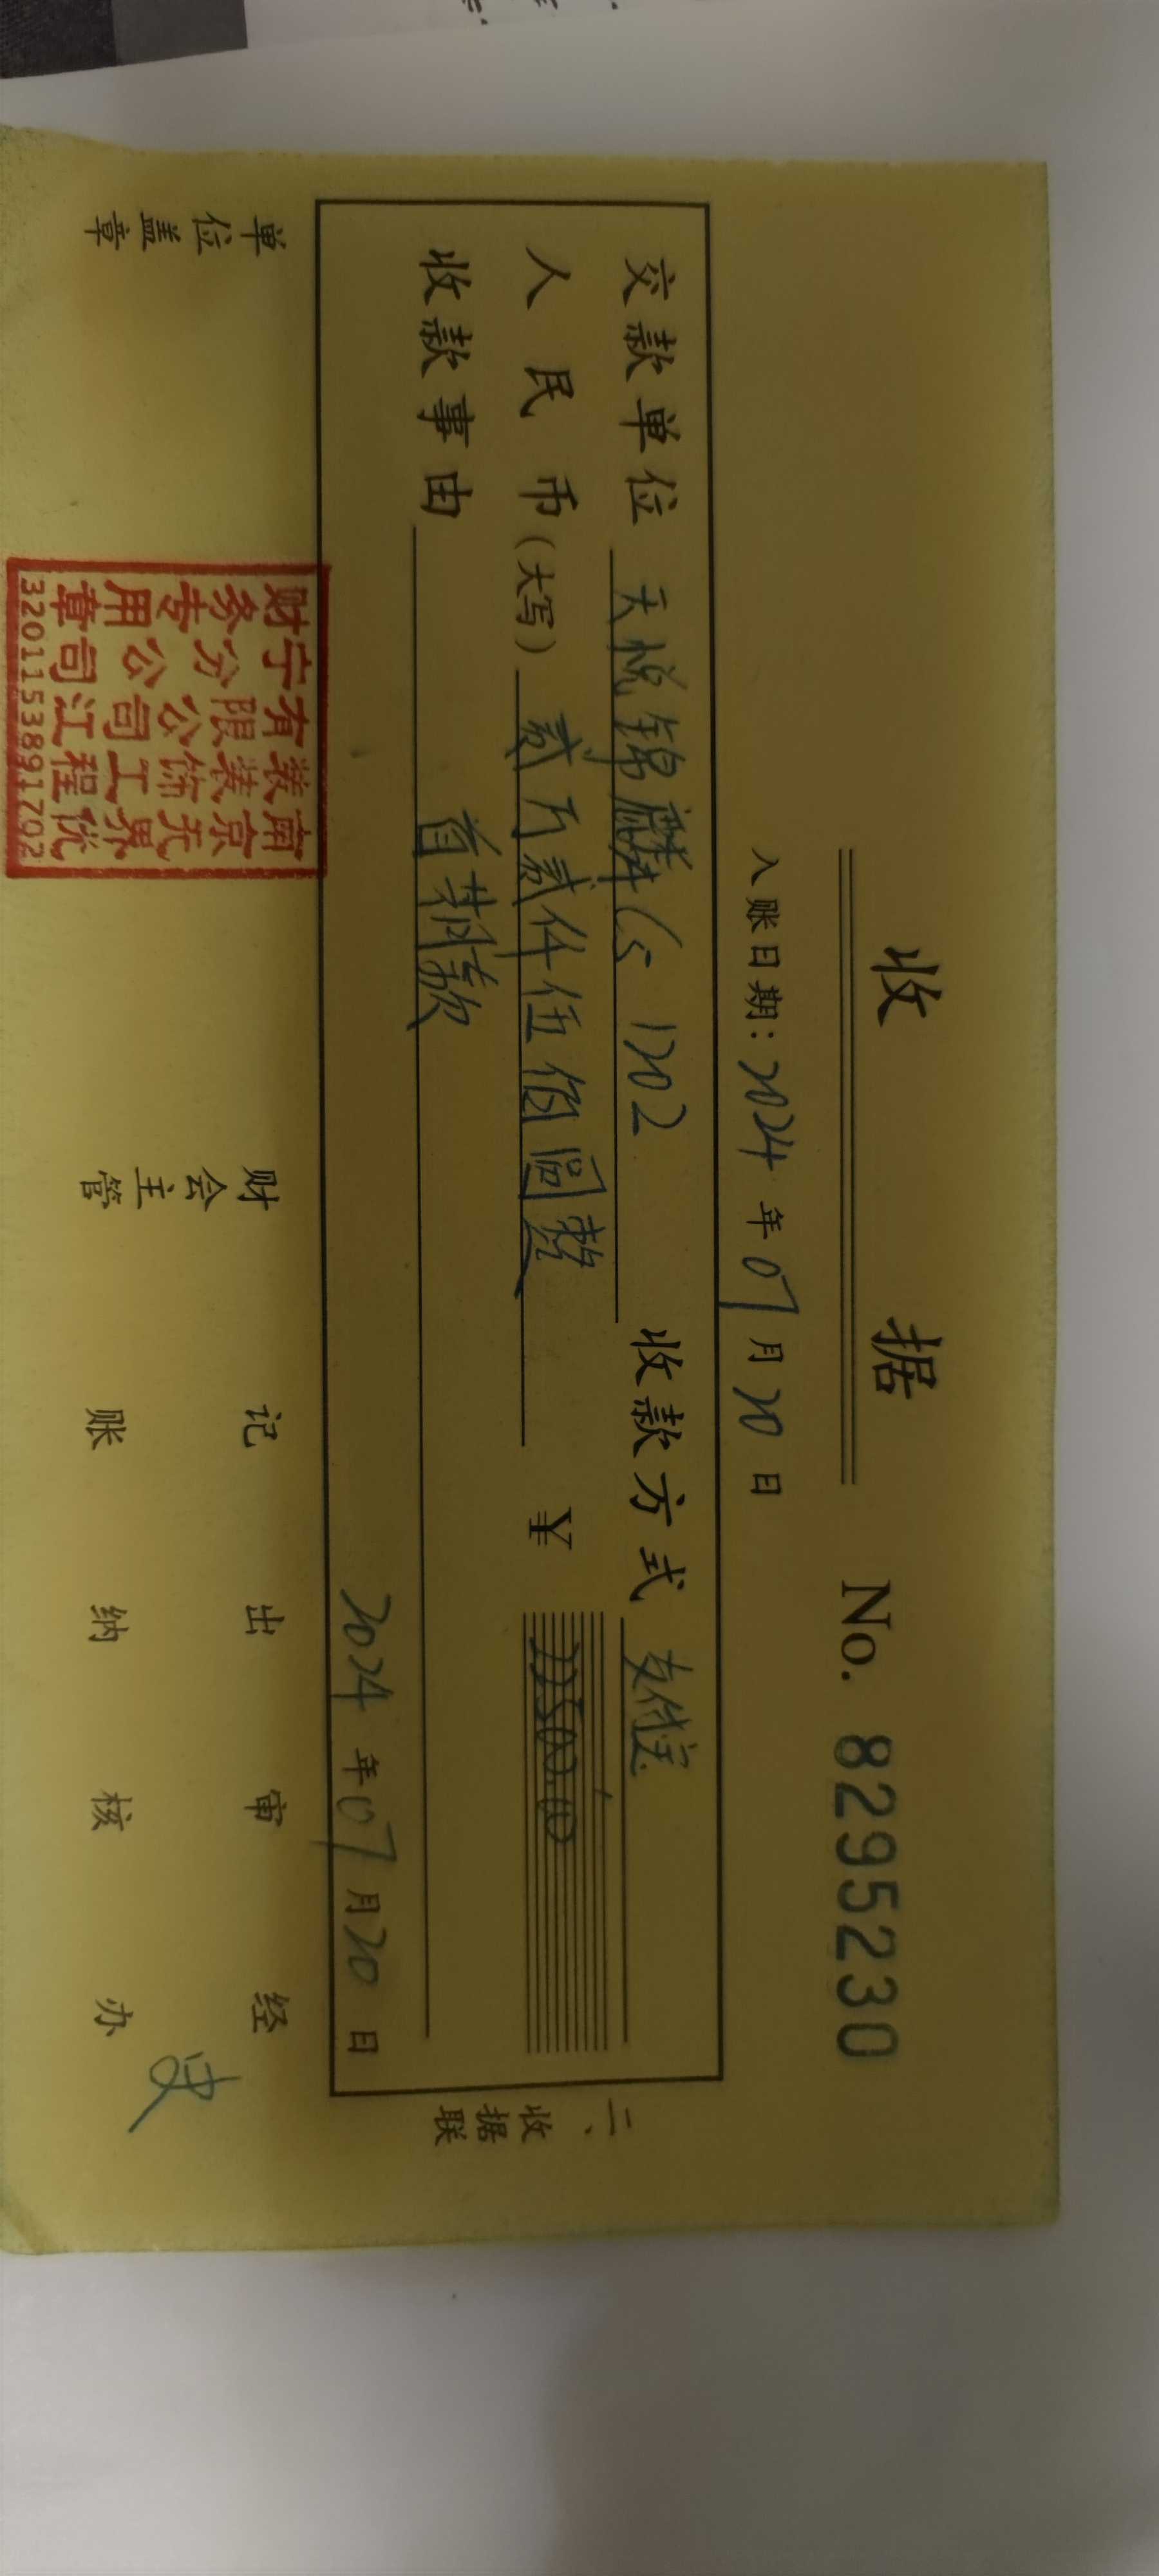 收 据
No. 8295230
入账日期：2024 年 07 月 20 日
交款单位 天悦锦麟 1202 收款方式 支付宝
人民币（大写） 贰万贰仟伍佰圆整 ¥ 22500.00
收款事由 首期款
2024 年 07 月 20 日
二、收据联
单位盖章 财会主管 记账 出纳 审核 经办
南京无界优
装饰工程
有限公司江
宁分公司
财务专用章